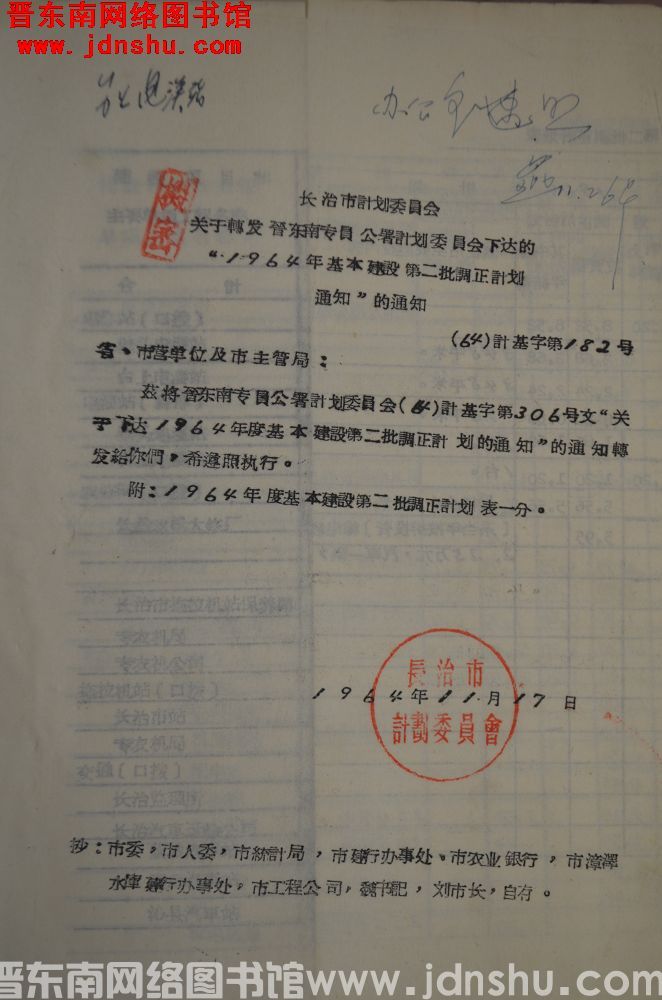 晋东南网络图书馆
www.jdnshu.com
办公室
11.26
机密
长治市計划委員会
关于轉发晉东南专員公署計划委員会下达的
“1964年基本建設第二批調正計划
通知”的通知
(64)計基字第182号
省、市营单位及市主管局：
茲将晉东南专員公署計划委員会(64)計基字第306号文“关
于下达1964年度基本建設第二批調正計划的通知”的通知轉
发給你們，希遵照执行。
附：1964年度基本建設第二批調正計划表一分。
1964年11月17日
長治市
計劃委員會
抄：市委，市人委，市統計局，市建行办事处。市农业銀行，市漳澤
水庫建行办事处，市工程公司，魏书記，刘市长，自存。
晋东南网络图书馆www.jdnshu.com